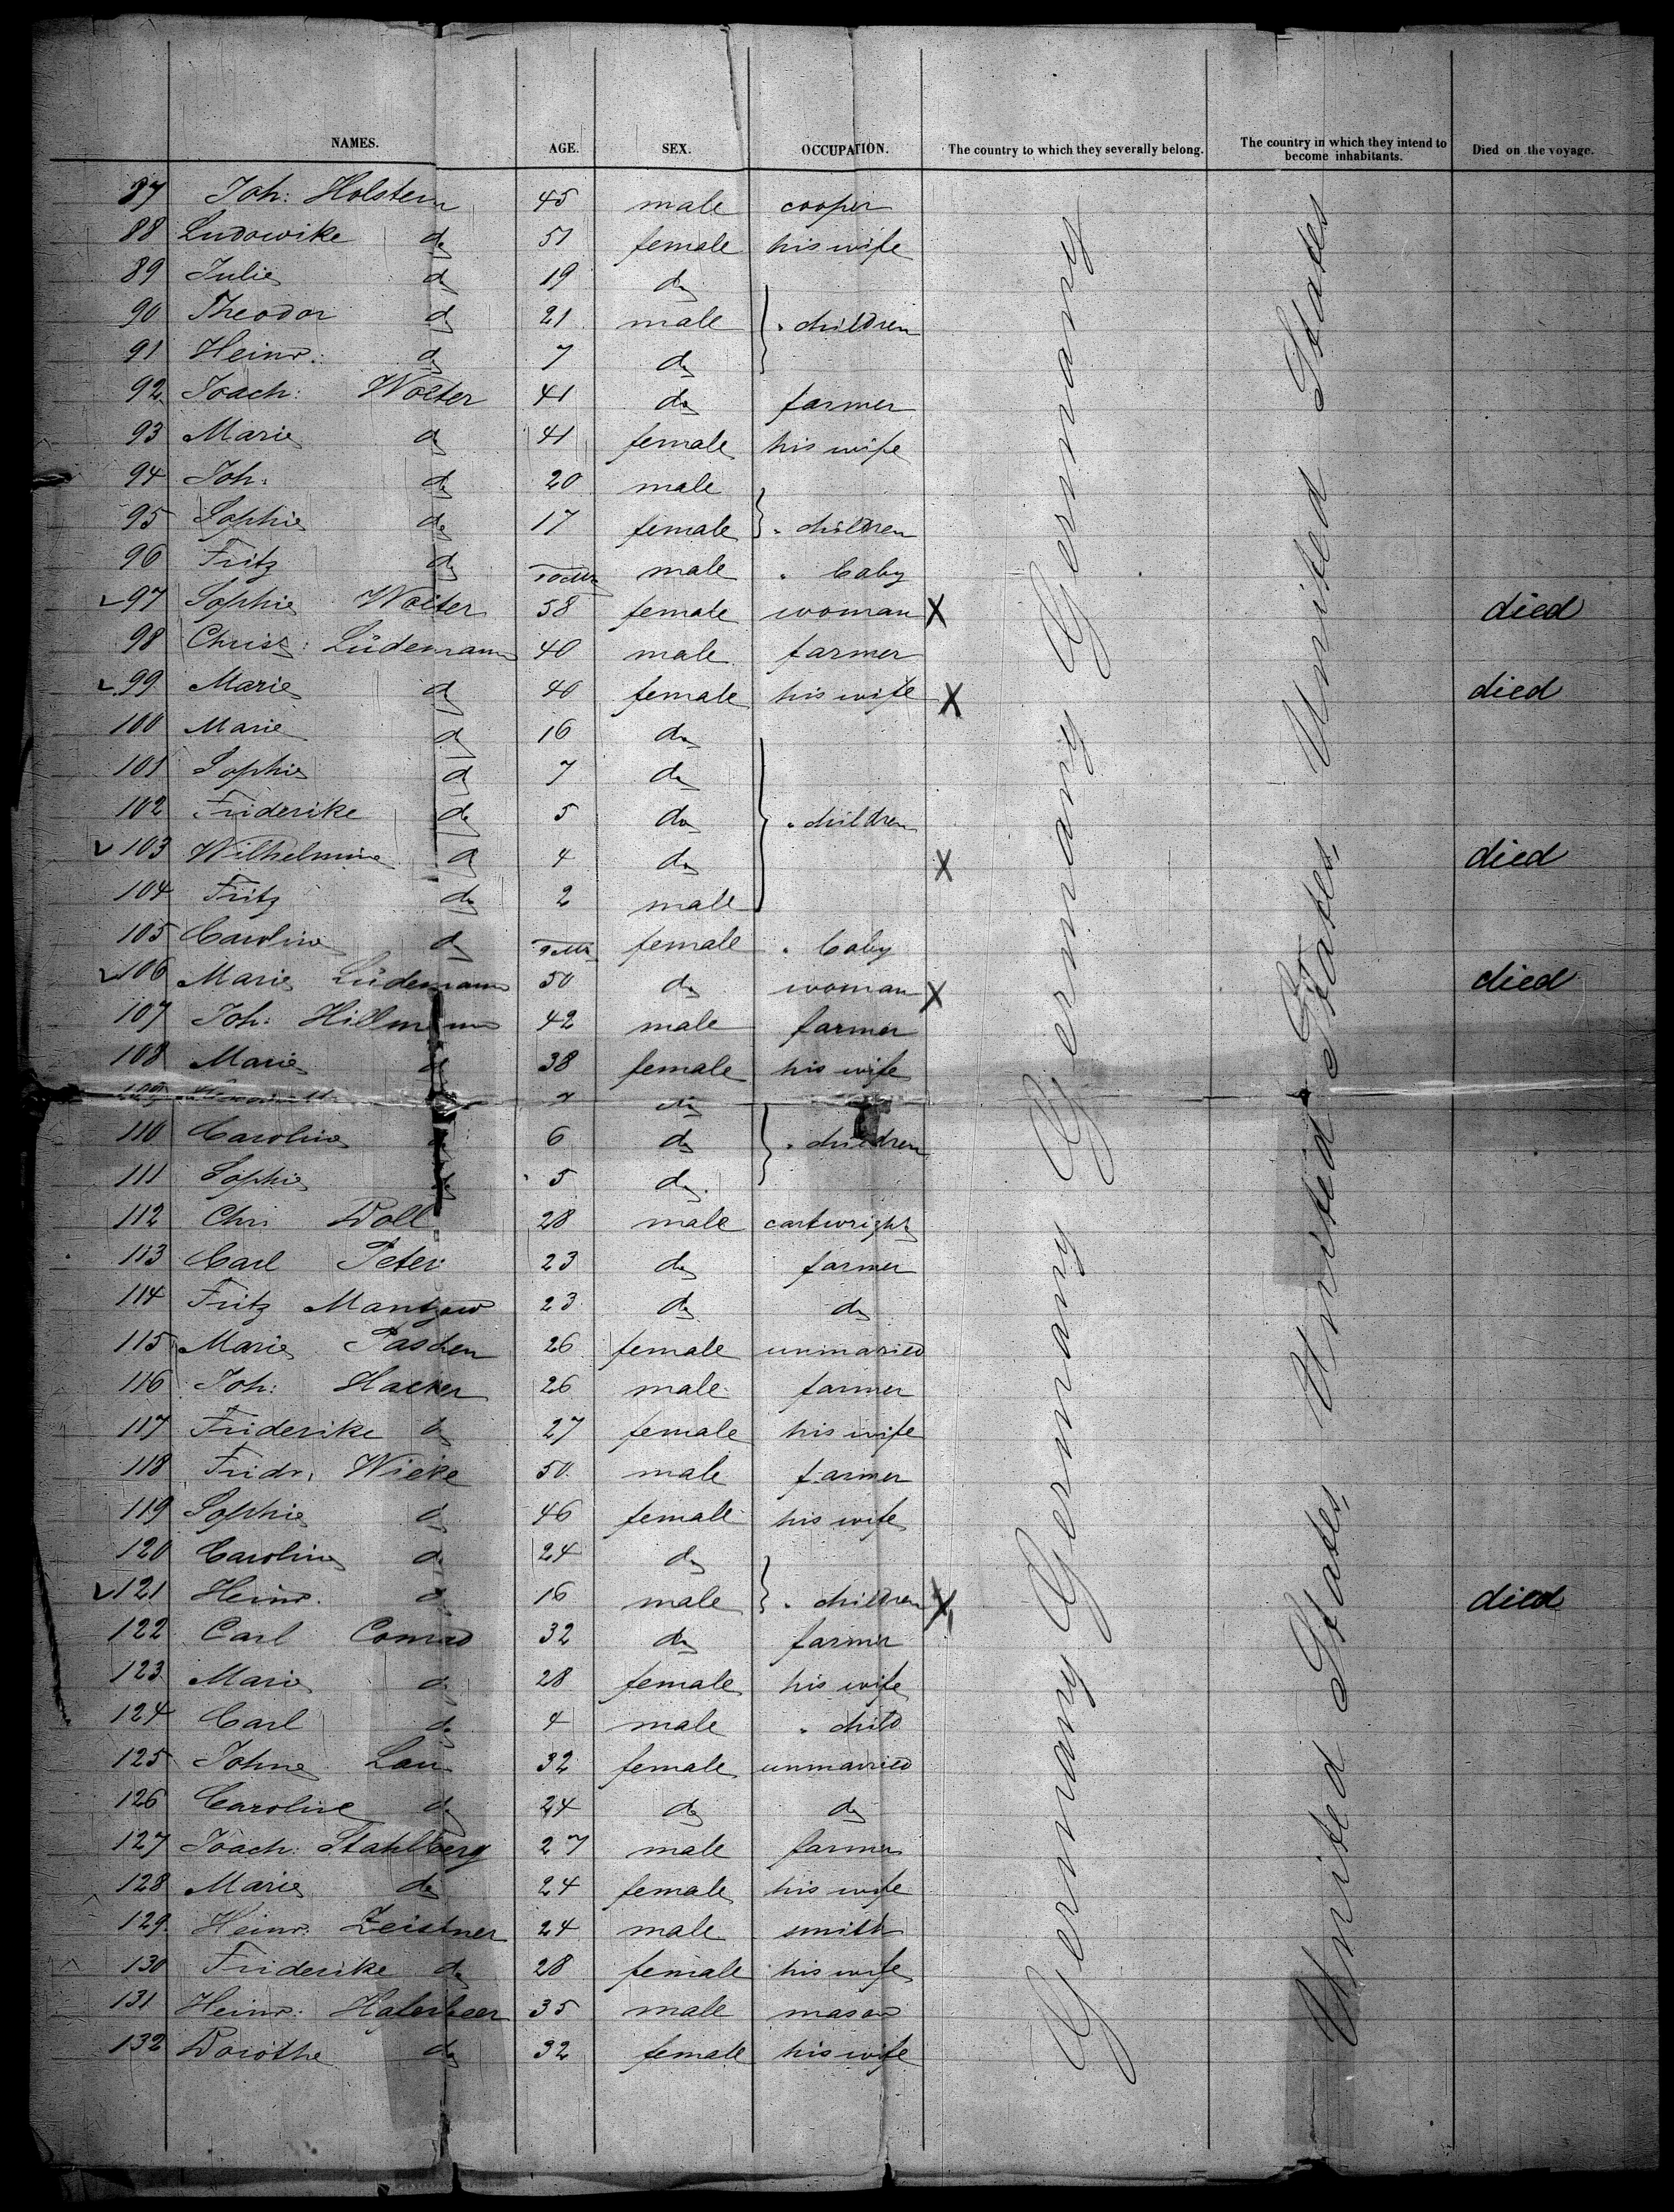 NAMES. AGE. SEX. OCCUPATION. The country to which they severally belong. The country in which they intend to become inhabitants. Died on the voyage.
87 Joh: Holstein 45 male cooper
88 Ludowike do 51 female his wife
89 Julie do 19 do
90 Theodor do 21 male } " children
91 Heinr: do 7 do
92 Joach: Wolter 41 do farmer
93 Marie do 41 female his wife
94 Joh: do 20 male
95 Sophie do 17 female } " children
96 Fritz do male " baby
97 Sophie Wolter 58 female woman X died
98 Christ: Lüdemann 40 male farmer
99 Marie do 40 female his wife X died
100 Marie do 16 do
101 Sophie do 7 do
102 Friderike do 5 do } " children
103 Wilhelmine do 4 do X died
104 Fritz do 2 male
105 Caroline do female " baby
106 Marie Lüdemann 50 do woman X died
107 Joh: Hillmann 42 male farmer
108 Marie do 38 female his wife
109 7 do
110 Caroline do 6 do } " children
111 Sophie do 5 do
112 Chri Doll 28 male cartwright
113 Carl Peter 23 do farmer
114 Fritz Mantzow 23 do do
115 Marie Paschen 26 female unmaried
116 Joh: Hacker 26 male farmer
117 Friderike do 27 female his wife
118 Fridr, Wieke 50 male farmer
119 Sophie do 46 female his wife
120 Caroline do 24 do
121 Heinr. do 16 male } " children X died
122 Carl Conrad 32 do farmer
123 Marie do 28 female his wife
124 Carl do 4 male " child
125 Johne Lau 32 female unmarried
126 Caroline do 24 do do
127 Joach: Stahlberg 27 male farmer
128 Marie do 24 female his wife
129 Heinr: Zeistner 24 male smith
130 Friderike do 28 female his wife
131 Heinr: 35 male mason
132 Dorothe do 32 female his wife
Germany Germany Germany Germany
United States United States United States